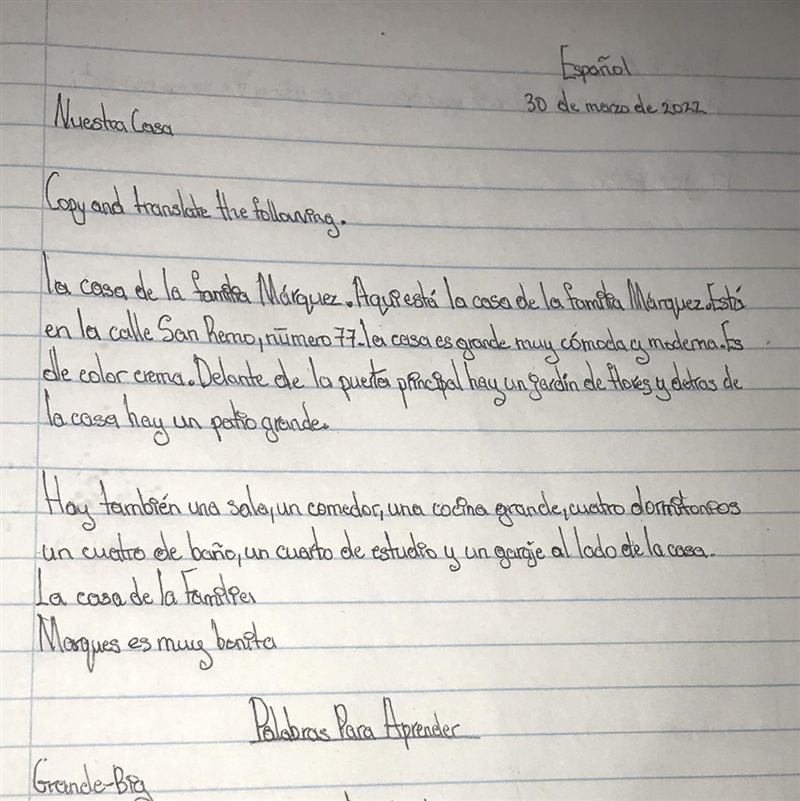 Español
30 de marzo de 2022
Nuestra Casa
Copy and translate the following.
la casa de la familia Márquez. Aqui está la casa de la familia Márquez. Está
en la calle San Remo, número 77. la casa es grande muy cómoda y moderna. Es
de color crema. Delante de la puerta principal hay un gardin de flores y detras de
la casa hay un patio grande.
Hay también una sala, un comedor, una cocina grande, cuatro dormitoreos
un cuatro de baño, un cuarto de estudio y un garaje al lado de la casa.
La casa de la Familia
Marques es muy bonita
Palabras Para Aprender
Grande-Big